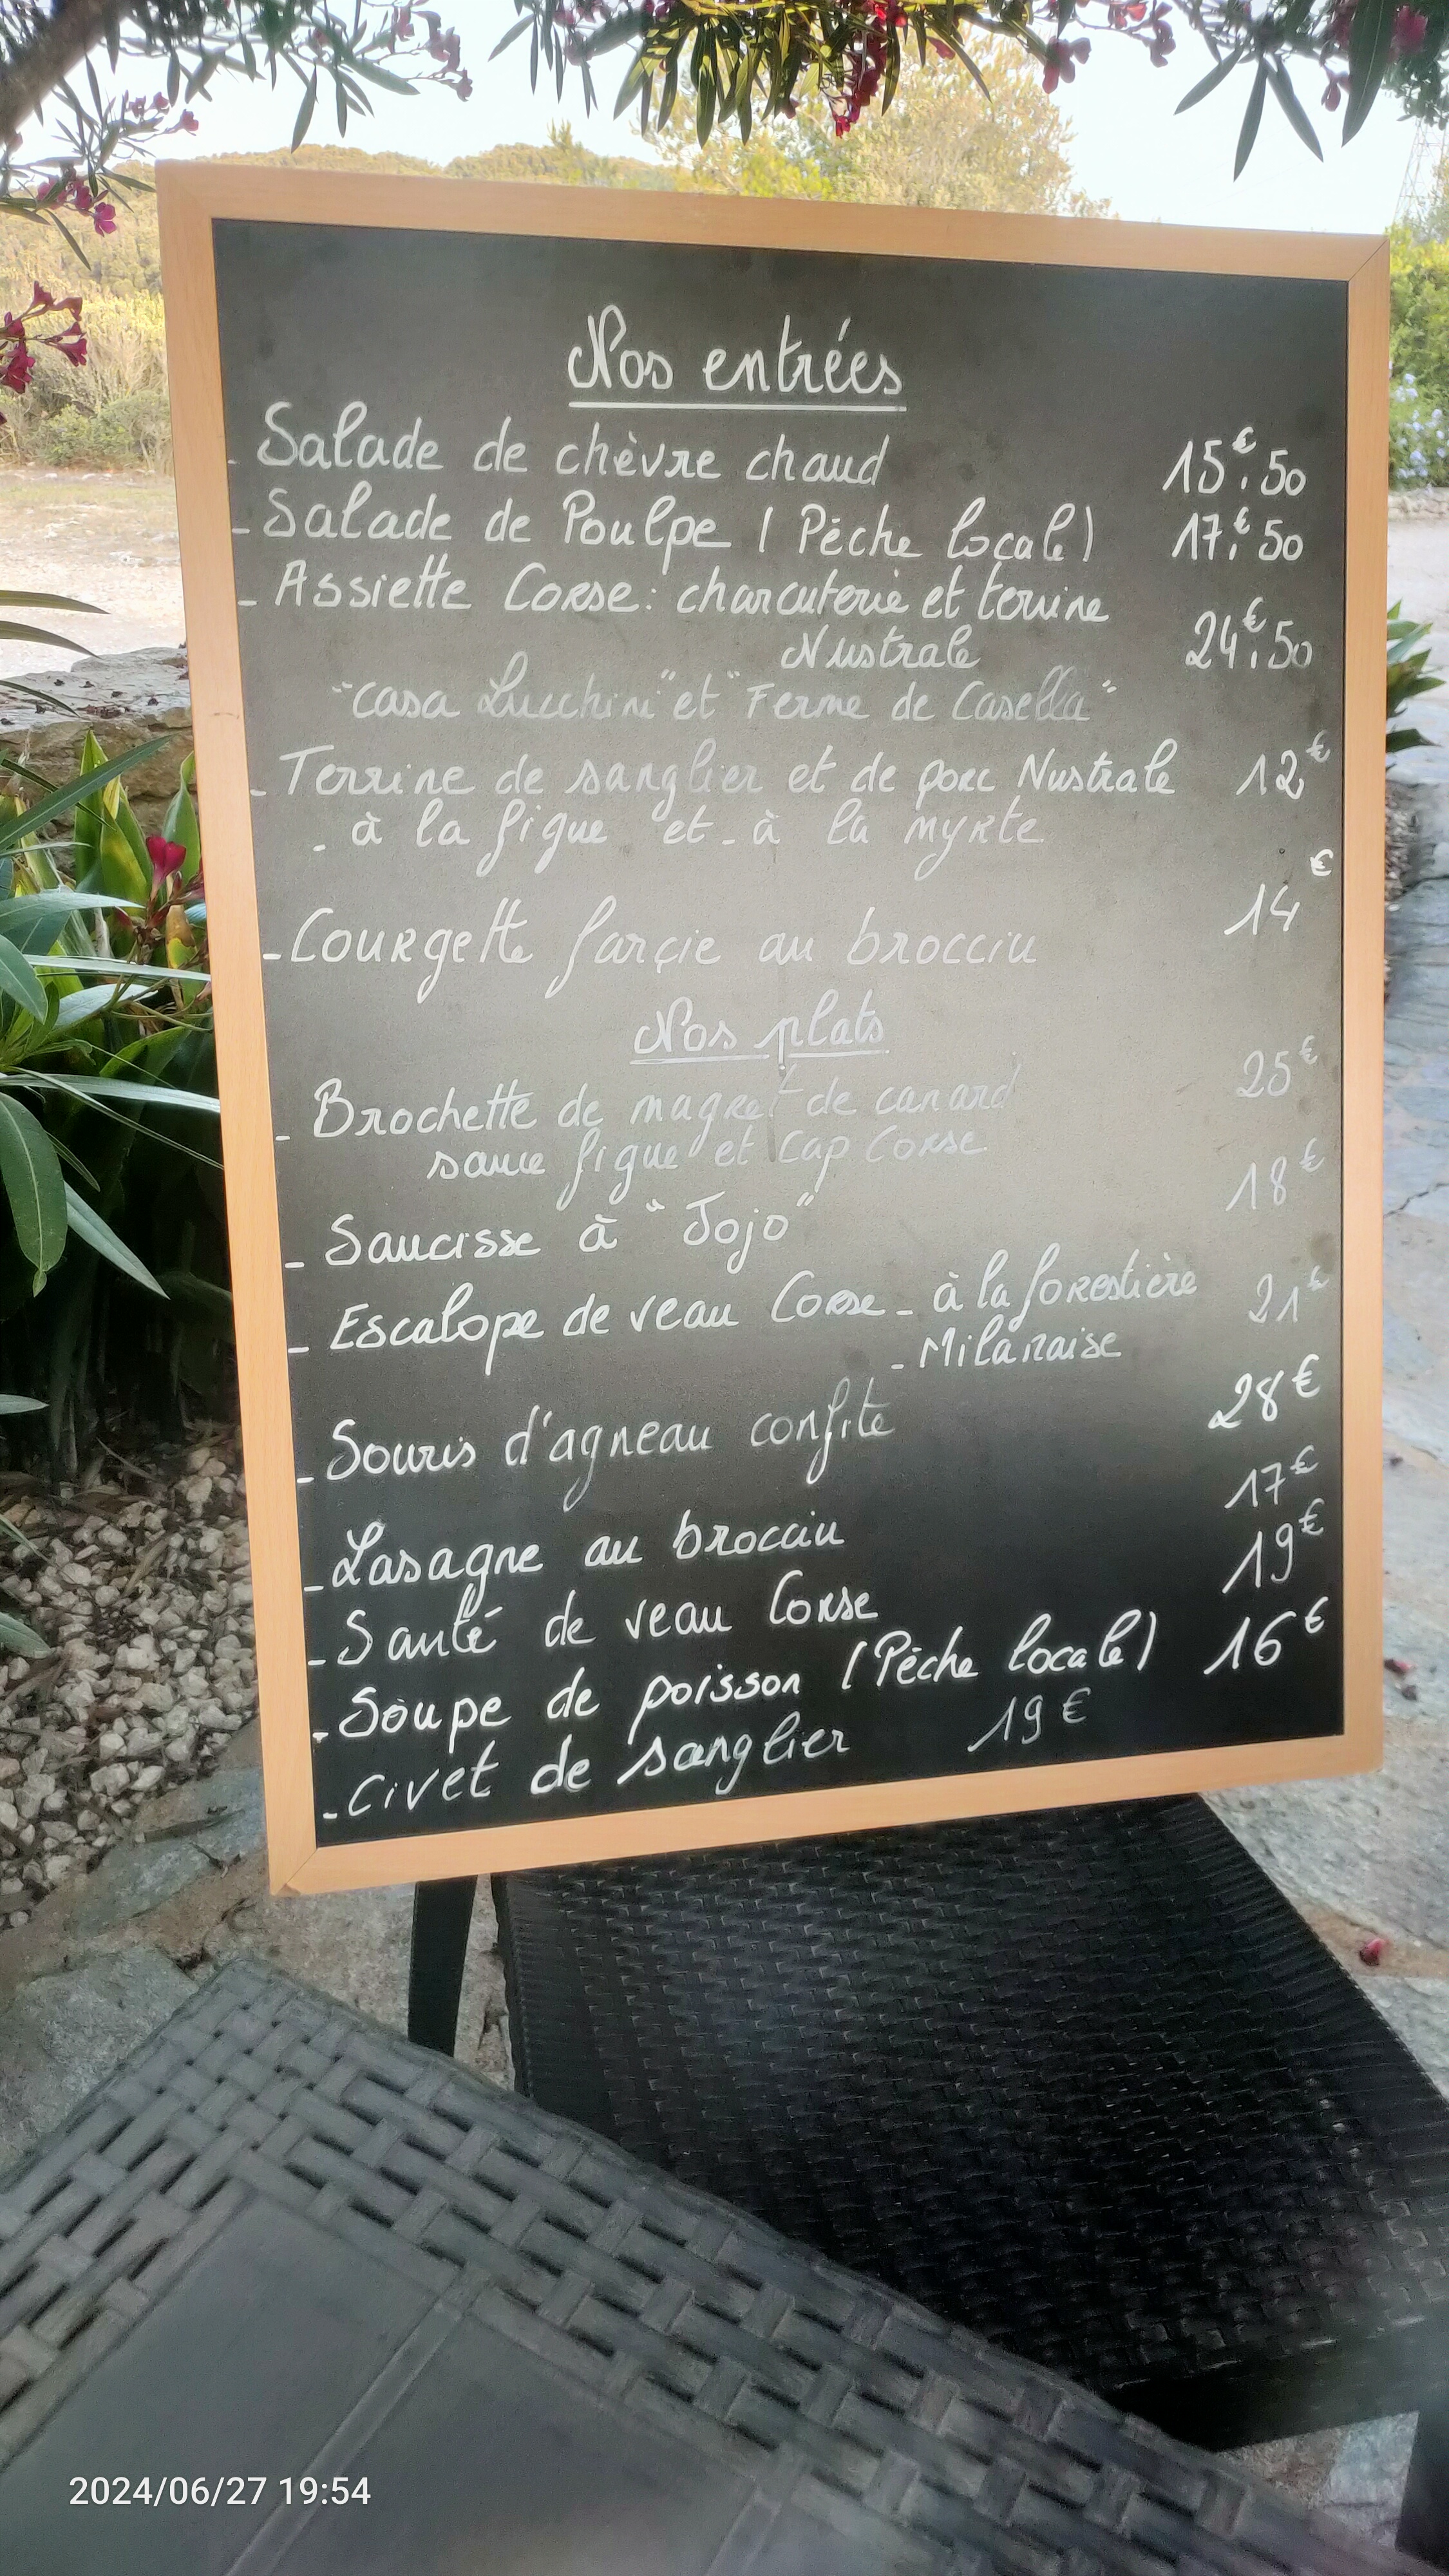 Nos entrées
- Salade de chèvre chaud 15€,50
- Salade de Poulpe (Pêche locale) 17€,50
- Assiette Corse: charcuterie et terrine
Nustrale 24€,50
"Casa Lucchini" et "Ferme de Casella"
- Terrine de sanglier et de porc Nustrale 12€
- à la figue et - à la myrte
- Courgette farçie au brocciu 14€
Nos plats
- Brochette de magret de canard 25€
sauce figue et Cap Corse
- Saucisse à "Jojo" 18€
- Escalope de veau Corse - à la forestière 21€
- Milanaise
- Souris d'agneau confite 28€
- Lasagne au brocciu 17€
- Sauté de veau Corse 19€
- Soupe de poisson (Pêche locale) 16€
- Civet de sanglier 19€
2024/06/27 19:54